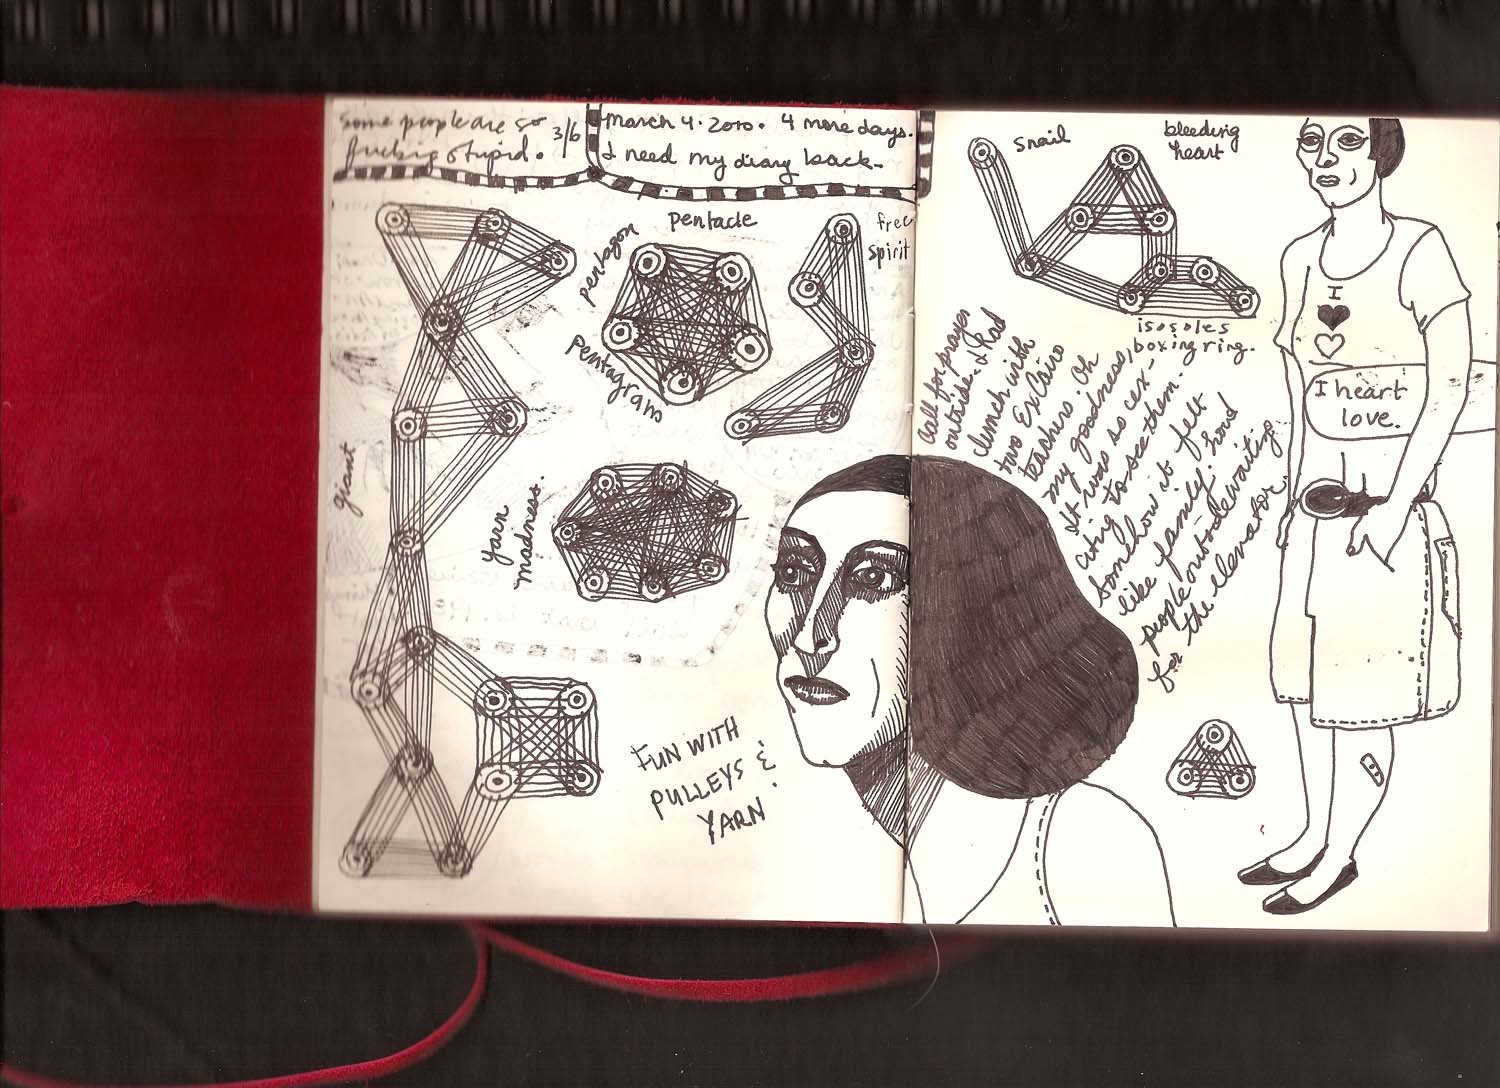 Some people are so
fucking stupid. 3/6
March 4. 2010. 4 more days.
I need my diary back.
pentacle
pentagon
pentagram
free
spirit
giant
yarn
madness.
FUN WITH
PULLEYS &
YARN.
snail
bleeding
heart
isosoles
boxing ring.
Call for prayer
outside. I had
lunch with
two ExCairo
teachers. Oh
my goodness,
It was so ex-
citing to see them.
Somehow it felt
like family.
people outside waiting
for the elevator.
I
I heart
love.